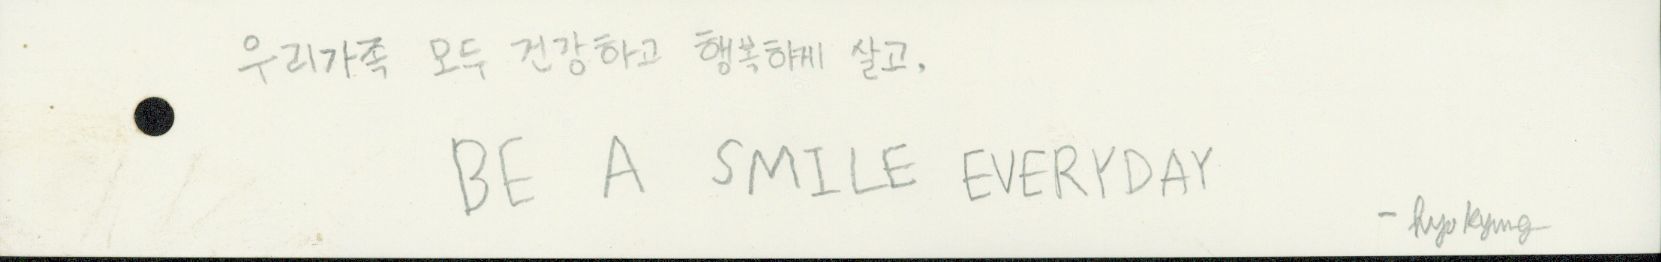 우리가족 모두 건강하고 행복하게 살고,
BE A SMILE EVERYDAY
- hyokyung